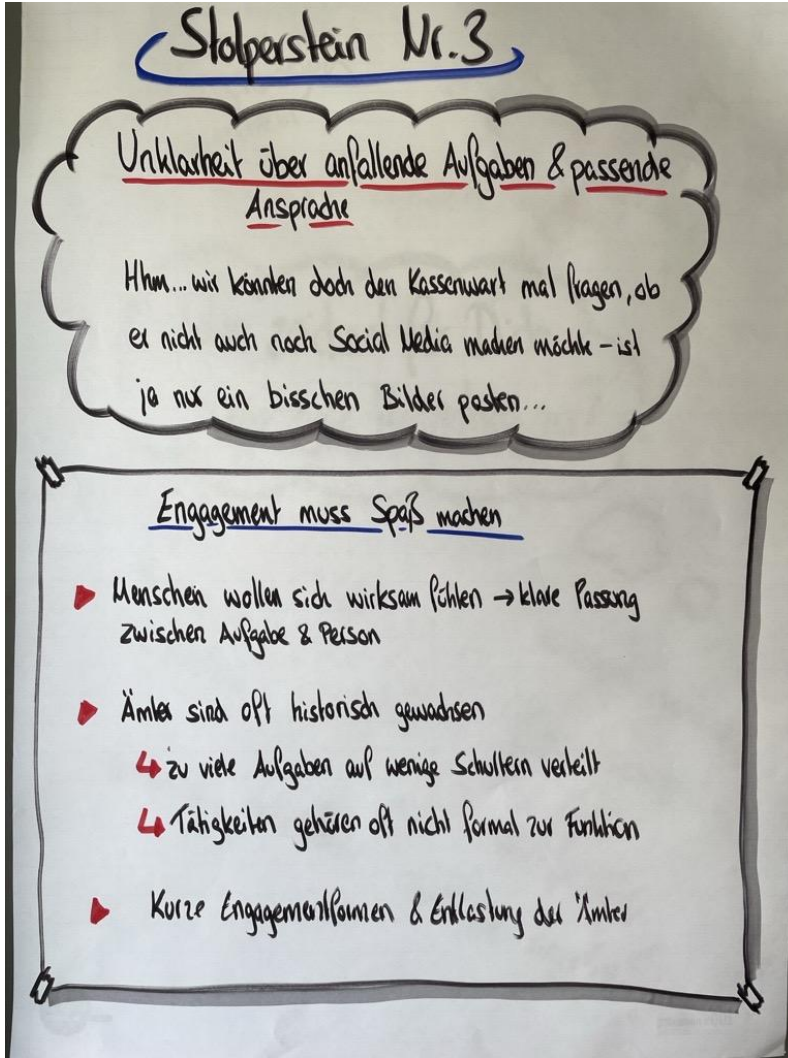 Stolperstein Nr.3
Unklarheit über anfallende Aufgaben & passende
Ansprache
Hhm... wir könnten doch den Kassenwart mal fragen, ob
er nicht auch noch Social Media machen möchte – ist
ja nur ein bisschen Bilder posten...
Engagement muss Spaß machen
Menschen wollen sich wirksam fühlen → klare Passung
zwischen Aufgabe & Person
Ämter sind oft historisch gewachsen
↳ zu viele Aufgaben auf wenige Schultern verteilt
↳ Tätigkeiten gehören oft nicht formal zur Funktion
Kurze Engagementformen & Entlastung der Ämter